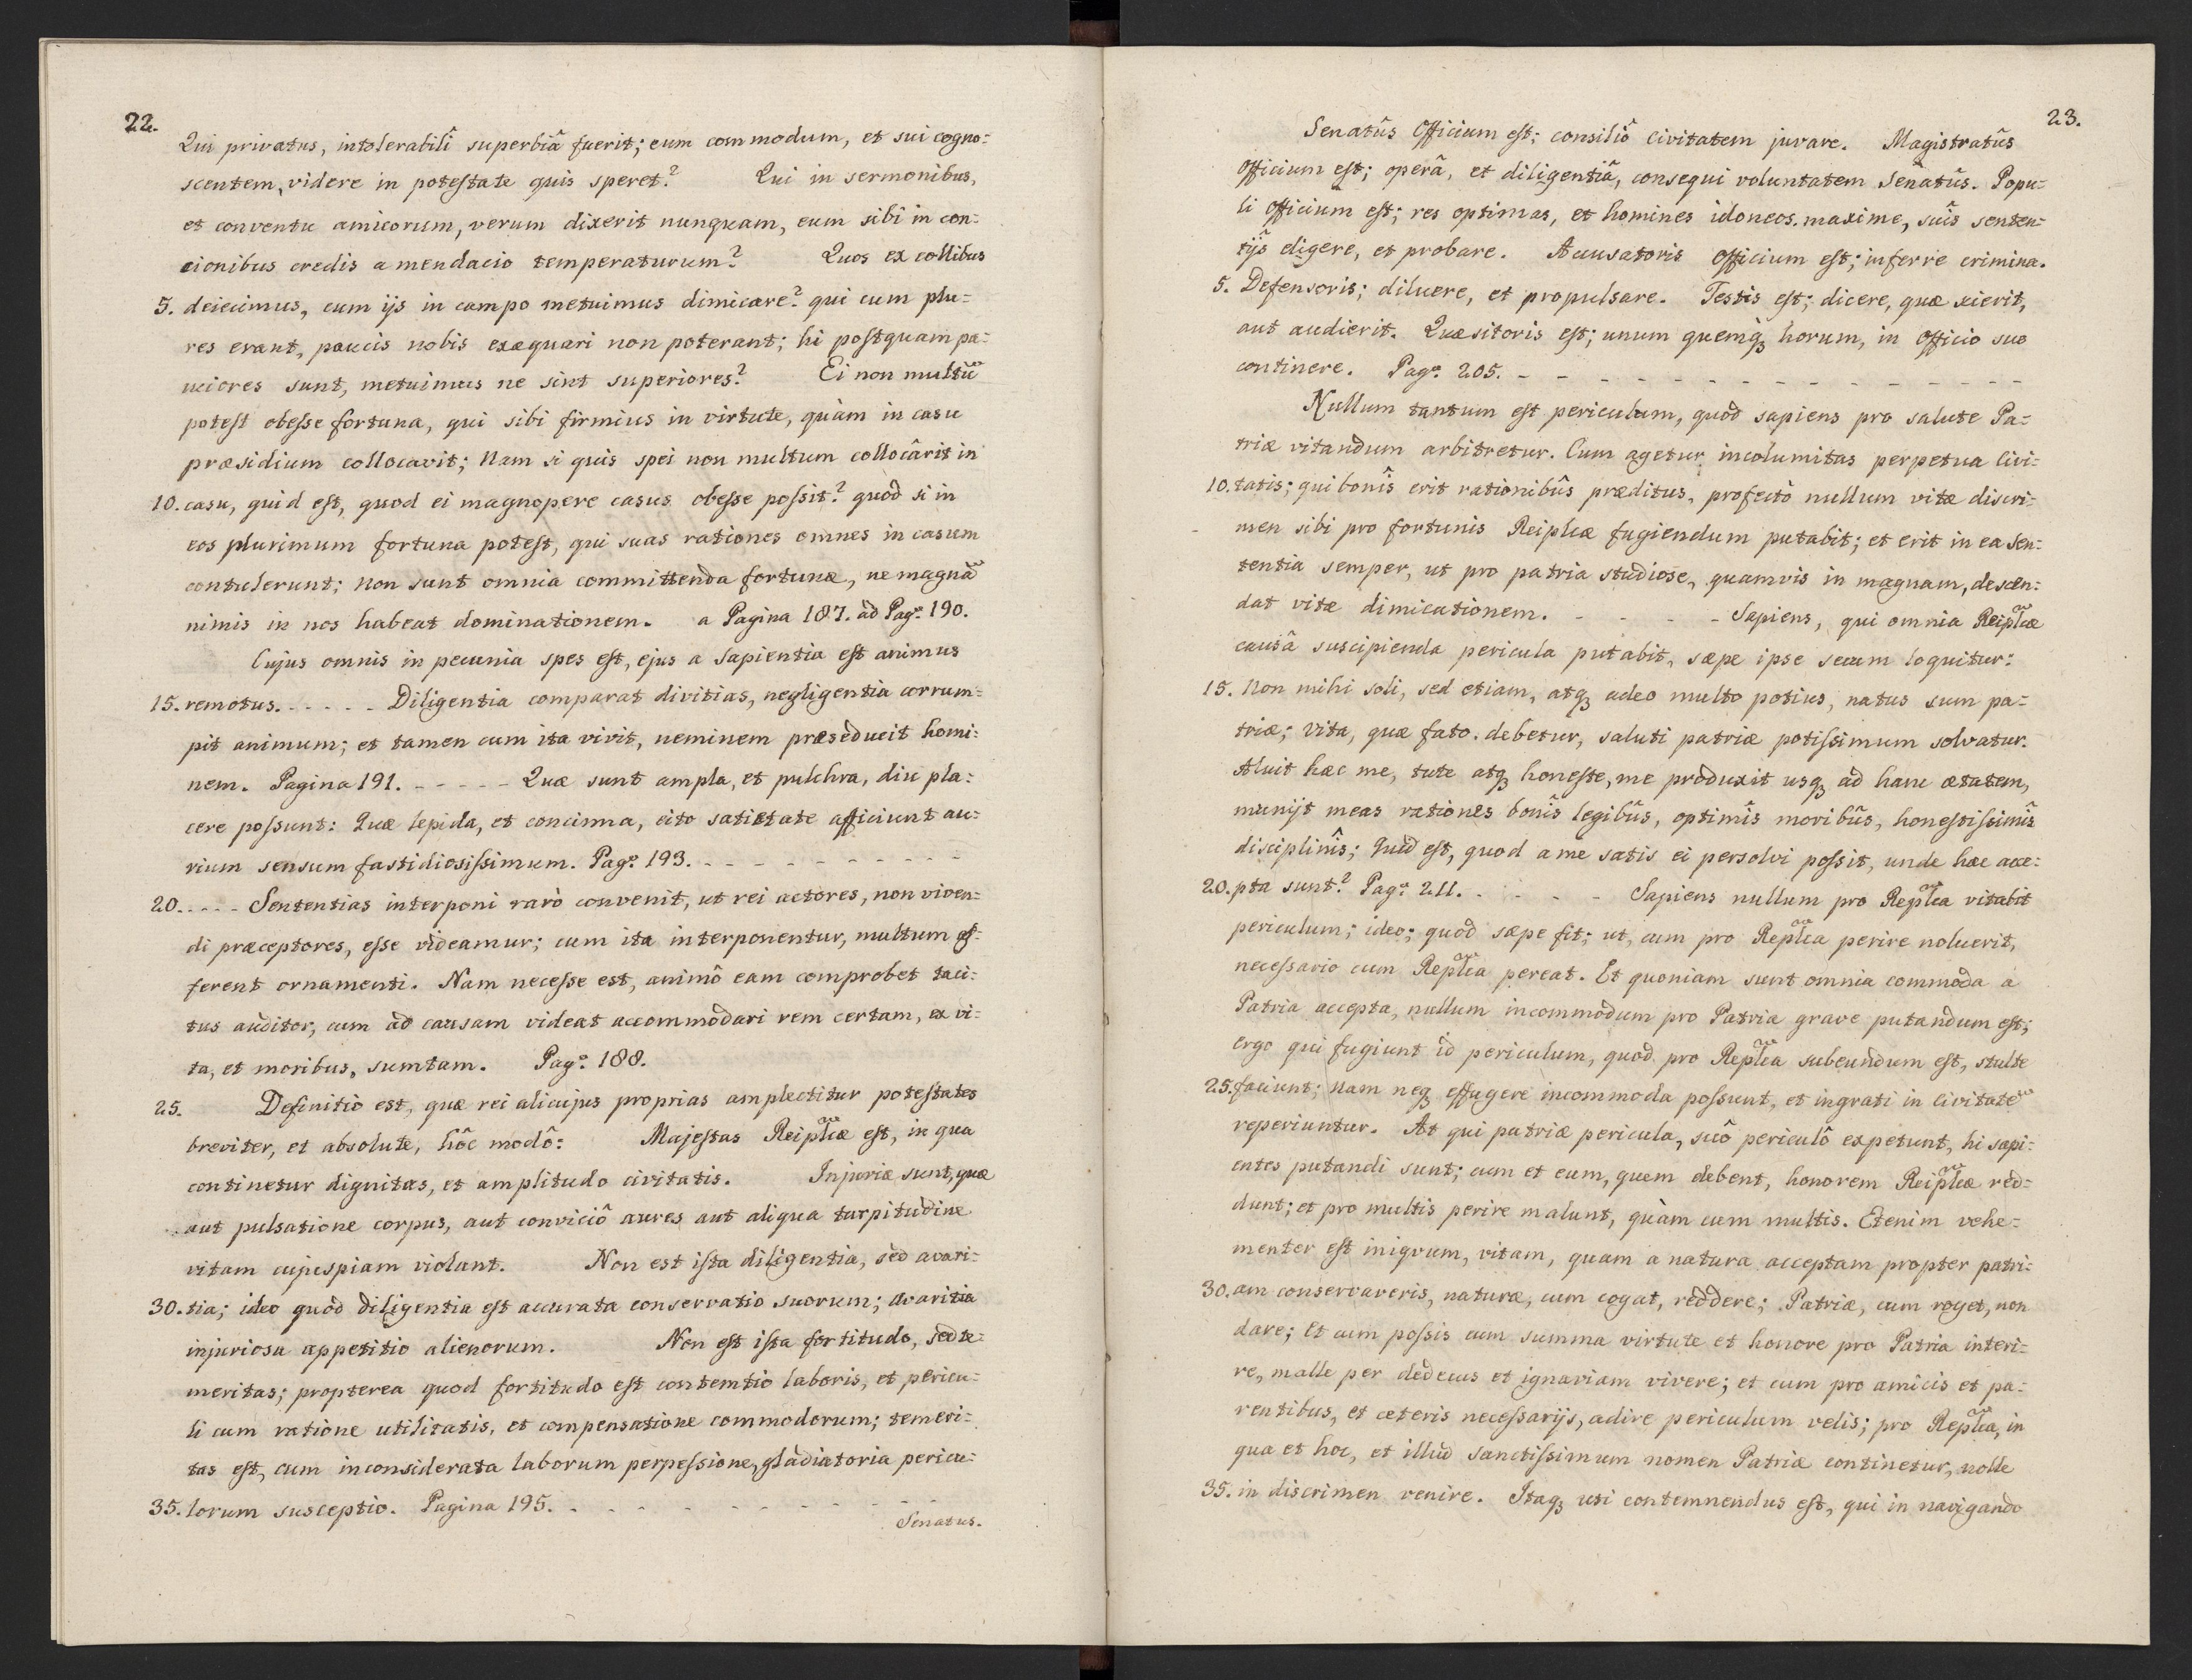 22.
Qui privatus, intolerabilî superbiâ fuerit; eum commodum, et sui cogno=
scentem, videre in potestate quis speret? Qui in sermonibus,
et conventu amicorum, verum dixerit nunquam, eum sibi in con=
cionibus credis a mendacio temperaturum? Quos ex collibus
5. deiecimus, cum ijs in campo metuimus dimicare? qui cum plu=
res erant, paucis nobis exæquari non poterant; hi postquam pa=
uciores sunt, metuimus ne sint superiores? Ei non multũ
potest obesse fortuna, qui sibi firmius in virtute, quàm in casu
præsidium collocavit; Nam si quis spei non multum collocârit in
10. casu, quid est, quod ei magnopere casus obesse possit? quod si in
eos plurimum fortuna potest, qui suas rationes omnes in casum
contulerunt; non sunt omnia committenda fortunæ, ne magnã
nimis in nos habeat dominationem. a Pagina 187. ad Pagª 190.
Cujus omnis in pecunia spes est, ejus a Sapientia est animus
15. remotus. - - - - - Diligentia comparat divitias, negligentia corrum=
pit animum; et tamen cum ita vivit, neminem præseducit homi=
nem. Pagina 191. - - - - - Quæ sunt ampla, et pulchra, diu pla=
cere possunt: Quæ lepida, et concinna, cito satietate afficiunt au=
rium sensum fastidiosissimum. Pagª 193. - - - - - - - - - -
20. - - - - Sententias interponi rarò convenit, ut rei actores, non viven=
di præceptores, esse videamur; cum ita interponentur, multum af=
ferent ornamenti. Nam necesse est, animô eam comprobet taci=
tus auditor, cum ad causam videat accommodari rem certam, ex vi=
ta, et moribus, sumtam. Pagª 188.
25. Definitio est, quæ rei alicujus proprias amplectitur potestates
breviter, et absolute, hôc modô: Majestas Reiplĩcæ est, in qua
continetur dignitas, et amplitudo civitatis. Injuriæ sunt, quæ
aut pulsatione corpus, aut conviciô aures aut aliqua turpitudine
vitam cujuspiam violant. Non est ista diligentia, sed avari=
30. tia; ideo quod diligentia est accurata conservatio suorum; avaritia
injuriosa appetitio alienorum. Non est ista fortitudo, sed te=
meritas; propterea quod fortitudo est contemtio laboris, et pericu=
li cum ratione utilitatis, et compensatione commodorum; temeri=
tas est, cum inconsiderata laborum perpessione, gladiatoria pericu=
35. lorum susceptio. Pagina 195. - - - - - - - - - -
Senatus.
23.
Senatûs Officium est; consiliô civitatem juvare. Magistratûs
Officium est; operâ, et diligentiâ, consequi voluntatem Senatûs. Popu=
li Officium est; res optimas, et homines idoneos maxime, suîs senten=
tijs eligere, et probare. Accusatoris Officium est; inferre crimina.
5. Defensoris; diluere, et propulsare. Testis est; dicere, quæ scierit,
aut audierit. Quæsitoris est; unum quemqꝫ horum, in Officio suo
continere. Pagª 205. - - - - - - - - - - - - - - - -
Nullum tantum est periculum, quod sapiens pro salute Pa=
triæ vitandum arbitretur. Cum agetur incolumitas perpetua Civi=
10. tatis; qui bonîs erit rationibûs præditus, profectò nullum vitæ discri=
men sibi pro fortunis Reiplcæ fugiendum putabit; et erit in ea sen=
tentia semper, ut pro patria studiose, quamvis in magnam, descen=
dat vitæ dimicationem. - - - - - Sapiens, qui omnia Reiplĩcæ
causâ suscipienda pericula putabit, sæpe ipse secum loquitur:
15. Non mihi soli, sed etiam, atqꝫ adeo multo potius, natus sum pa=
triæ; Vita, quæ fato debetur, saluti patriæ potissimum solvatur.
Aluit hæc me, tute atqꝫ honeste, me produxit usqꝫ ad hanc ætatem,
munijt meas rationes bonîs legibûs, optimîs moribûs, honestissimîs
disciplinîs; Quid est, quod a me satis ei persolvi possit, unde hæc acce=
20. pta sunt? Pagª 211. - - - - Sapiens nullum pro Replĩca vitabit
periculum; ideo; quod sæpe fit; ut, cum pro Replĩca perire noluerit,
necessario cum Replĩca pereat. Et quoniam sunt omnia commoda a
Patria accepta, nullum incommodum pro Patria grave putandum est;
ergo qui fugiunt id periculum, quod pro Replĩca subeundum est, stulte
25. faciunt; Nam neqꝫ effugere incommoda possunt, et ingrati in Civitate
reperiuntur. At qui patriæ pericula, suô periculô expetunt, hi sapi=
entes putandi sunt; cum et eum, quem debent, honorem Reiplĩcæ red=
dunt; et pro multis perire malunt, quàm cum multis. Etenim vehe=
menter est iniquum, vitam, quam a natura acceptam propter patri=
30. am conservaveris, naturæ, cum cogat, reddere; Patriæ, cum roget, non
dare; Et cum possis cum summa virtute et honore pro Patria interi=
re, malle per dedecus et ignaviam vivere; et cum pro amicis et pa=
rentibus, et ceteris necessarijs, adire periculum velis; pro Replĩca, in
qua et hoc, et illud Sanctissimum nomen Patriæ continetur, nolle
35. in discrimen venire. Itaqꝫ uti contemnendus est, qui in navigando